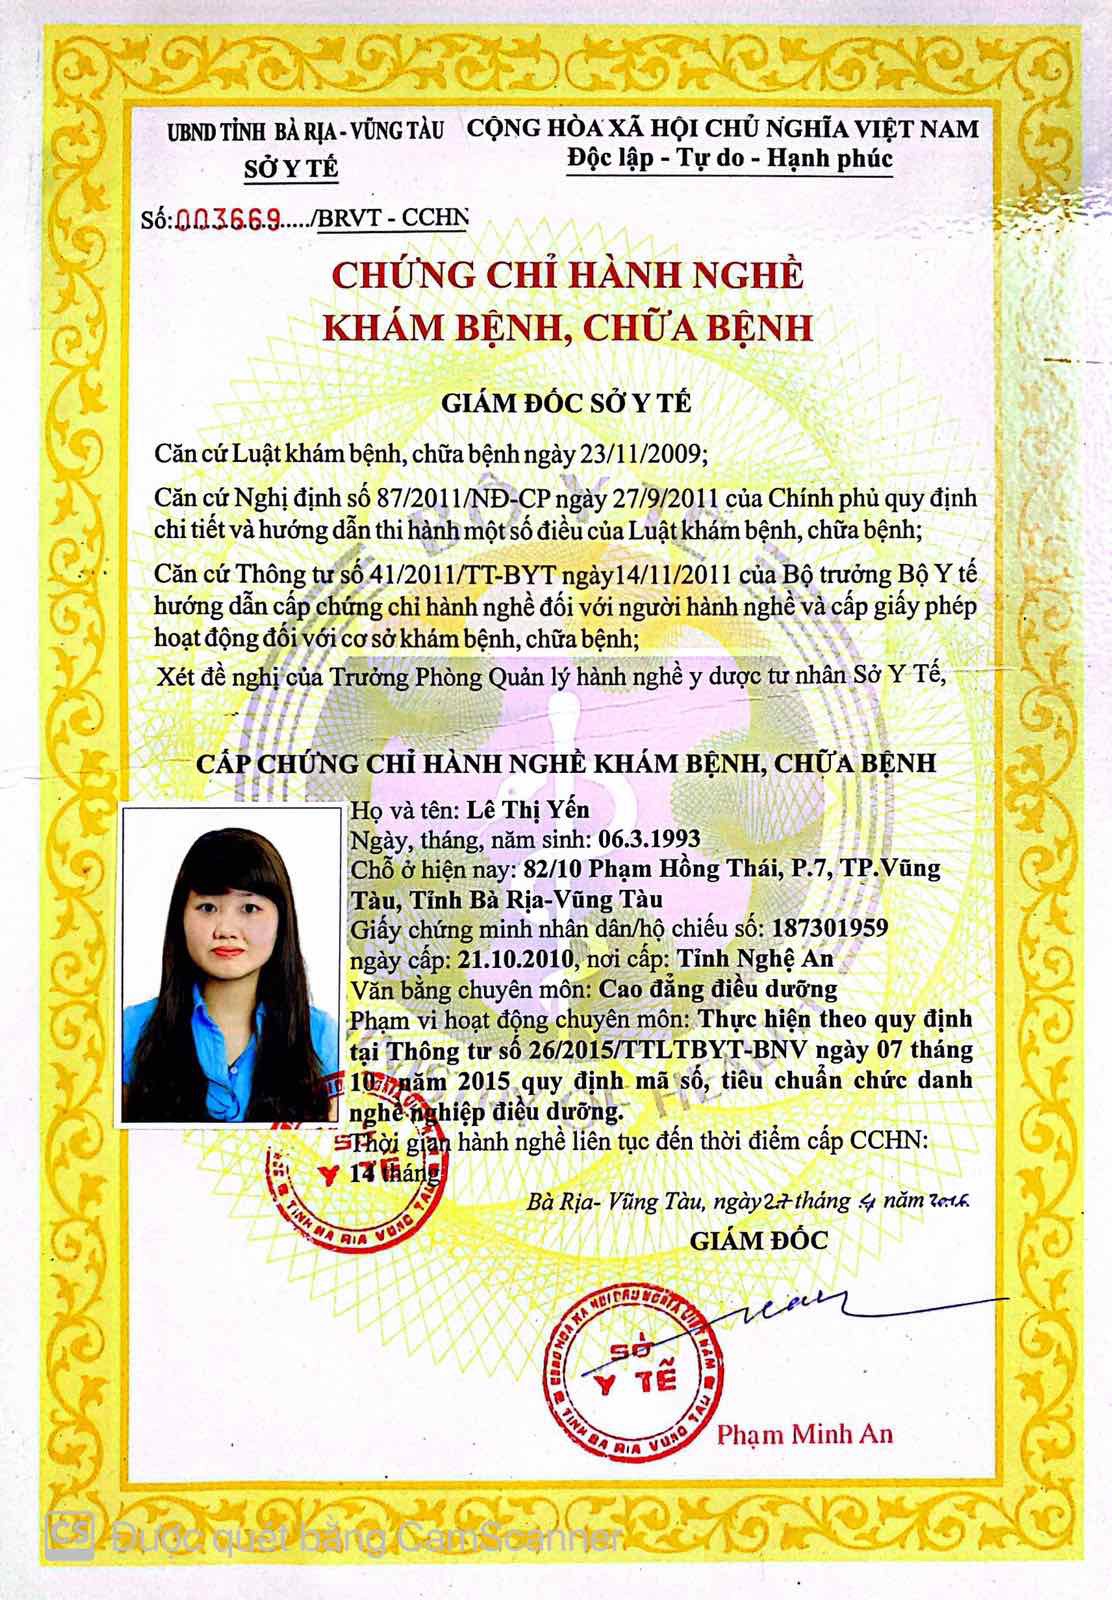 UBND TỈNH BÀ RỊA - VŨNG TÀU
SỞ Y TẾ
CỘNG HÒA XÃ HỘI CHỦ NGHĨA VIỆT NAM
Độc lập - Tự do - Hạnh phúc
Số:003669...../BRVT - CCHN
CHỨNG CHỈ HÀNH NGHỀ
KHÁM BỆNH, CHỮA BỆNH
GIÁM ĐỐC SỞ Y TẾ
Căn cứ Luật khám bệnh, chữa bệnh ngày 23/11/2009;
Căn cứ Nghị định số 87/2011/NĐ-CP ngày 27/9/2011 của Chính phủ quy định
chi tiết và hướng dẫn thi hành một số điều của Luật khám bệnh, chữa bệnh;
Căn cứ Thông tư số 41/2011/TT-BYT ngày14/11/2011 của Bộ trưởng Bộ Y tế
hướng dẫn cấp chứng chỉ hành nghề đối với người hành nghề và cấp giấy phép
hoạt động đối với cơ sở khám bệnh, chữa bệnh;
Xét đề nghị của Trưởng Phòng Quản lý hành nghề y dược tư nhân Sở Y Tế,
CẤP CHỨNG CHỈ HÀNH NGHỀ KHÁM BỆNH, CHỮA BỆNH
Họ và tên: Lê Thị Yến
Ngày, tháng, năm sinh: 06.3.1993
Chỗ ở hiện nay: 82/10 Phạm Hồng Thái, P.7, TP.Vũng
Tàu, Tỉnh Bà Rịa-Vũng Tàu
Giấy chứng minh nhân dân/hộ chiếu số: 187301959
ngày cấp: 21.10.2010, nơi cấp: Tỉnh Nghệ An
Văn bằng chuyên môn: Cao đẳng điều dưỡng
Phạm vi hoạt động chuyên môn: Thực hiện theo quy định
tại Thông tư số 26/2015/TTLTBYT-BNV ngày 07 tháng
10 năm 2015 quy định mã số, tiêu chuẩn chức danh
nghề nghiệp điều dưỡng.
Thời gian hành nghề liên tục đến thời điểm cấp CCHN:
14 tháng
SỞ
Y TẾ
TỈNH BÀ RỊA VŨNG TÀU
Bà Rịa- Vũng Tàu, ngày 27 tháng 4 năm 2016
GIÁM ĐỐC
CỘNG HÒA XÃ HỘI CHỦ NGHĨA VIỆT NAM
SỞ
Y TẾ
TỈNH BÀ RỊA VŨNG TÀU
Phạm Minh An
CS Được quét bằng CamScanner